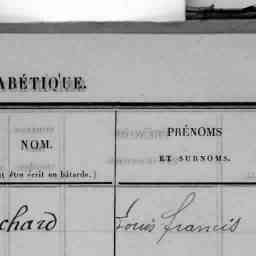 ABÉTIQUE.
NOM.
t être écrit en bâtarde.)
PRÉNOMS
ET SURNOMS.
chard
Louis Francis